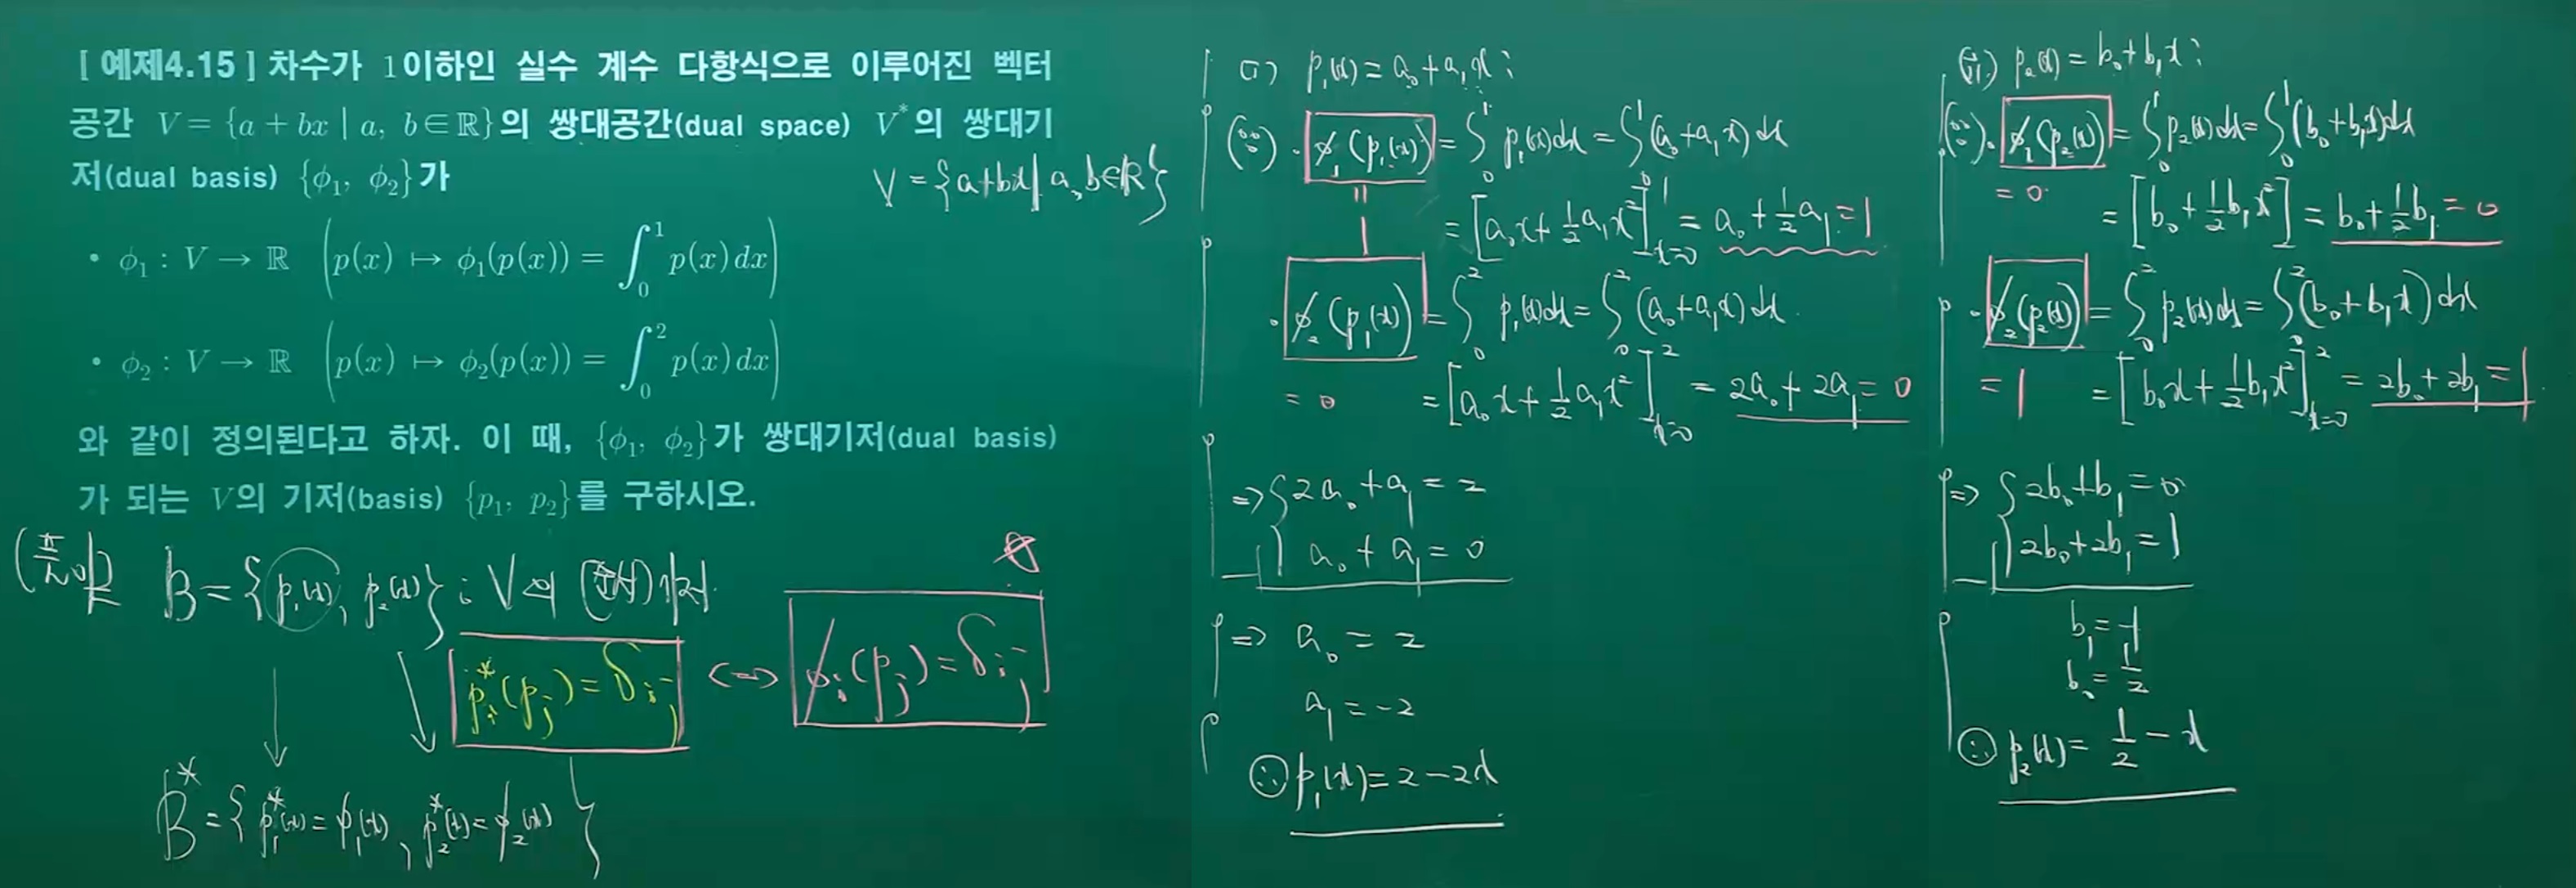 [ 예제4.15 ] 차수가 1이하인 실수 계수 다항식으로 이루어진 벡터
공간 V = {a + bx | a, b ∈ ℝ}의 쌍대공간(dual space) V*의 쌍대기
저(dual basis) {ϕ₁, ϕ₂}가
V = {a+bx | a, b∈ℝ}
• ϕ₁ : V → ℝ (p(x) ↦ ϕ₁(p(x)) = ∫₀¹ p(x) dx)
• ϕ₂ : V → ℝ (p(x) ↦ ϕ₂(p(x)) = ∫₀² p(x) dx)
와 같이 정의된다고 하자. 이 때, {ϕ₁, ϕ₂}가 쌍대기저(dual basis)
가 되는 V의 기저(basis) {p₁, p₂}를 구하시오.
(풀이)
B = {p₁(x), p₂(x)} : V의 (순서)기저
pᵢ*(pⱼ) = δᵢⱼ ⟺ ϕᵢ(pⱼ) = δᵢⱼ
B* = {p₁*(x) = ϕ₁(x), p₂*(x) = ϕ₂(x)}
(i) p₁(x) = a₀ + a₁x ;
(∵) · ϕ₁(p₁(x)) = ∫₀¹ p₁(x)dx = ∫₀¹ (a₀ + a₁x) dx
= [a₀x + ½a₁x²]¹ₓ₌₀ = a₀ + ½a₁ = 1
= 1
· ϕ₂(p₁(x)) = ∫₀² p₁(x)dx = ∫₀² (a₀ + a₁x) dx
= 0 = [a₀x + ½a₁x²]²ₓ₌₀ = 2a₀ + 2a₁ = 0
⇒ { 2a₀ + a₁ = 2
a₀ + a₁ = 0
⇒ a₀ = 2
a₁ = -2
∴ p₁(x) = 2 - 2x
(ii) p₂(x) = b₀ + b₁x ;
(∵) · ϕ₁(p₂(x)) = ∫₀¹ p₂(x)dx = ∫₀¹ (b₀ + b₁x)dx
= 0 = [b₀ + ½b₁x²] = b₀ + ½b₁ = 0
· ϕ₂(p₂(x)) = ∫₀² p₂(x)dx = ∫₀² (b₀ + b₁x) dx
= 1 = [b₀x + ½b₁x²]²ₓ₌₀ = 2b₀ + 2b₁ = 1
⇒ { 2b₀ + b₁ = 0
2b₀ + 2b₁ = 1
b₁ = 1
b₀ = ½
∴ p₂(x) = ½ - x